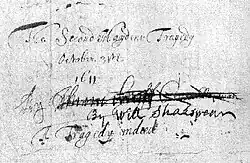 The Second Maydens Tragedy
October 31st
1611
By Thomas Goff
By Will Shakspear
A Tragedy indeed